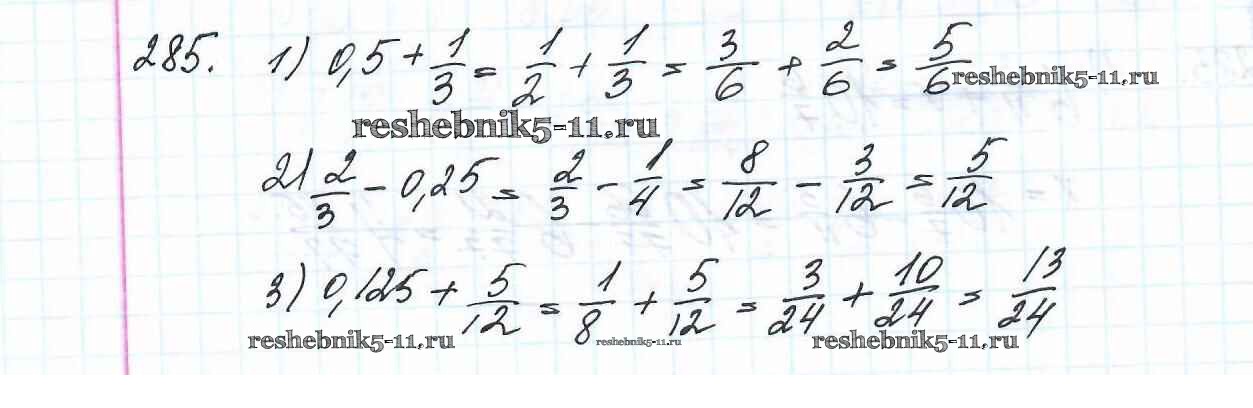 285. 1) 0,5 + 1/3 = 1/2 + 1/3 = 3/6 + 2/6 = 5/6 reshebnik5-11.ru
reshebnik5-11.ru
2) 2/3 - 0,25 = 2/3 - 1/4 = 8/12 - 3/12 = 5/12
3) 0,125 + 5/12 = 1/8 + 5/12 = 3/24 + 10/24 = 13/24
reshebnik5-11.ru reshebnik5-11.ru reshebnik5-11.ru